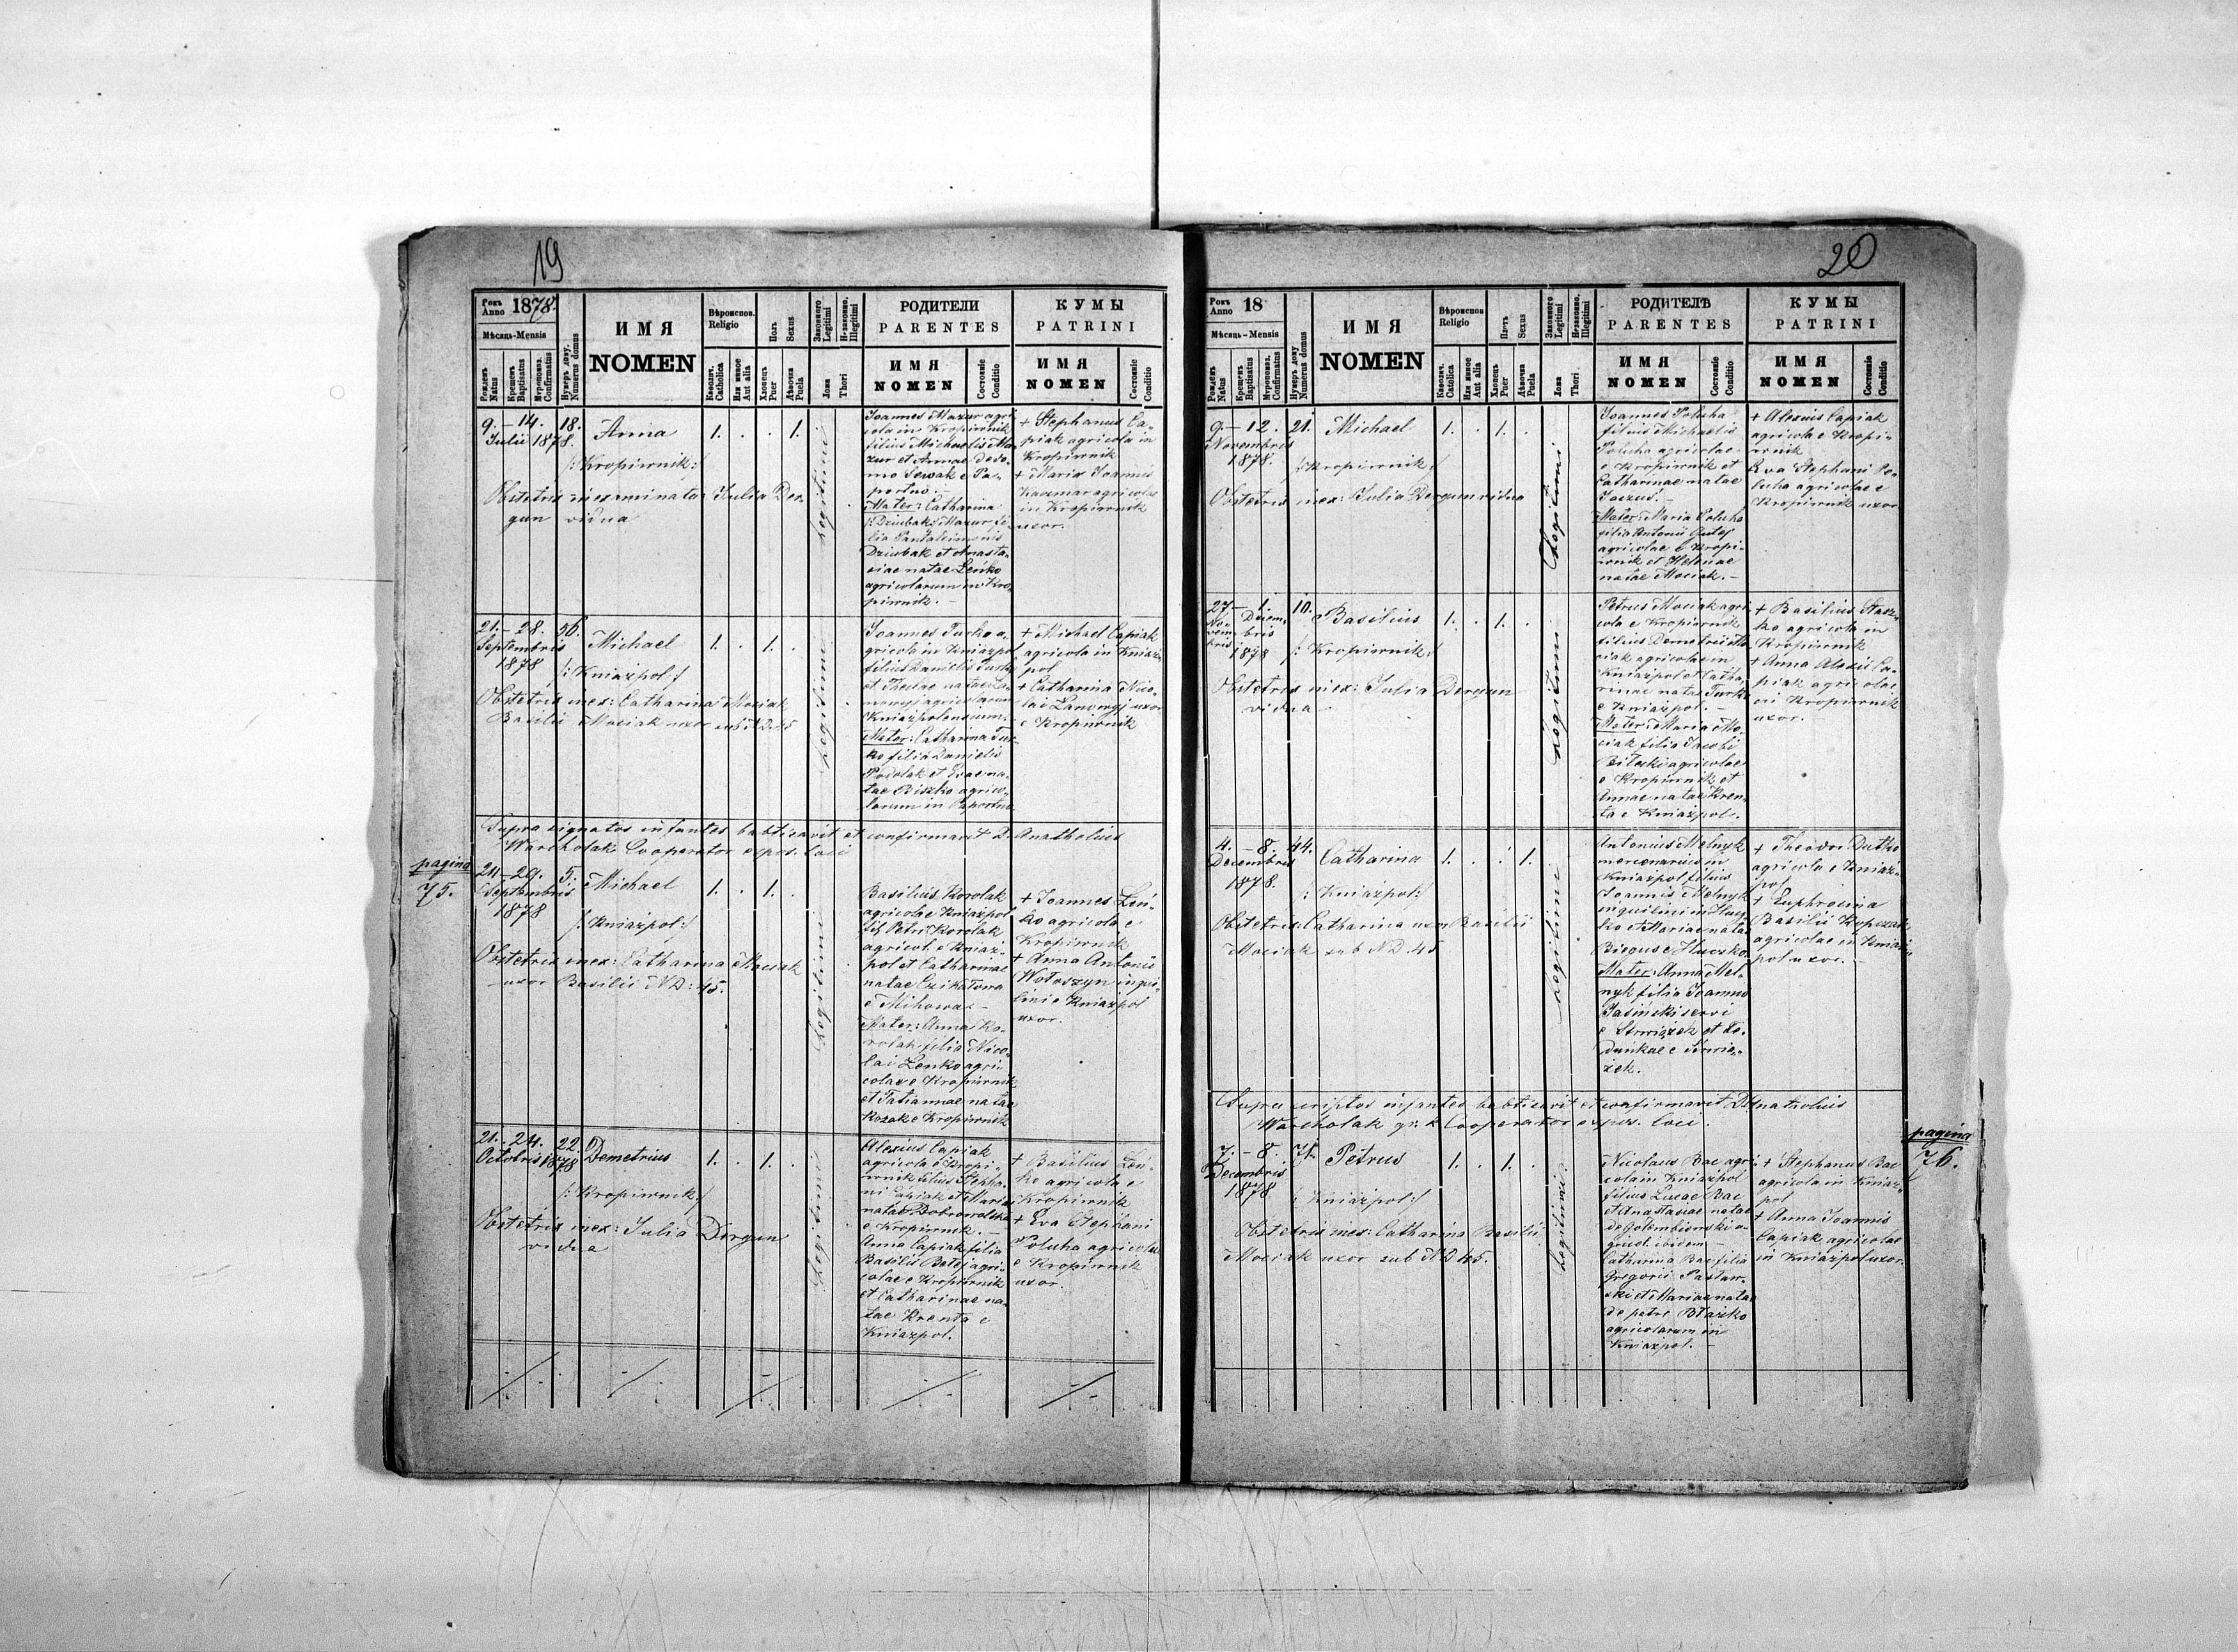 19
Рокъ Anno 1878.
Мѣсяць-Mensis
Рожденъ Natus
Крещенъ Baptisatus
Мѵропомаз. Confirmatus
Нумеръ дому. Numerus domus
ИМЯ
NOMEN
Вѣроиспов. Religio
Каѳолич. Catholica
Или иное Aut alia
Полъ Sexus
Хлопецъ Puer
Дѣвочка Puela
Законного Legitimi
Незаконно. Illegitimi
Ложа Thori
РОДИТЕЛИ
PARENTES
ИМЯ
NOMEN
Состояніе Conditio
КУМЫ
PATRINI
ИМЯ
NOMEN
Состояніе Conditio
9. – 14. 18.
Iulii 1878.
Anna
1. . . 1.
/:Kropiwnik:/
Obstetrix inexaminata: Iulia Der-
gun vidua
Legitimi
Ioannes Mazur agri-
cola in Kropiwnik
filius Michaelis Ma-
zur et Annae de do-
mo Sewak e Pa-
portno. –
Mater: Catharina
/:Dziubak:/ Mazur fi-
lia Pantaleimonis
Dziubak et Anasta-
siae natae Leńko
agricolarum in Kro-
piwnik. –
+ Stephanus Ca-
piak agricola in
Kropiwnik
+ Maria Ioannis
Kaczmar agricolae
in Kropiwnik
uxor.
21. – 28. 56.
Septembris
1878
Michael
1. . 1. .
/:Kniażpol:/
Obstetrix inex: Catharina Mociak
Basilii Mociak uxor sub N.D. 45
Legitimi
Ioannes Turko a-
gricola in Kniażpol
filius Danielis Turko
et Theclae natae La-
nowyj agricolarum
Kniażpolensium.
Mater: Catharina Tur-
ko filia Danielis
Podolak et Evae na-
tae Biszko agrico-
larum in Paportno
+ Michael Capiak
agricola in Kniaż-
pol
+ Catharina Nico-
lai Lanowyj uxor
e Kropiwnik
Supra signatos infantes babtisavit et confirmavit D. Anatholius
Warcholak Cooperator expos. loci
pagina
75.
24 – 29. 5.
Septembris
1878
Michael
1. . 1. .
/:Kniażpol:/
Obstetrix inex: Catharina Mociak
uxor Basilii ND: 45.
Legitimi
Basilius Korolak
agricola e Kniażpol
fil. Petri Korolak
agricol. e Kniaż-
pol et Catharinae
natae
e Mihowa –
Mater: Anna Ko-
rolak filia Nico-
lai Leńko agri-
colae e Kropiwnik
et Tatiannae natae
Kozak e Kropiwnik
+ Ioannes Leń-
ko agricola e
Kropiwnik
+ Anna Antonii
Wołoszyn inqui-
lini e Kniażpol
uxor.
21. 24. 22.
Octobris 1878
Demetrius
1. . 1. .
/:Kropiwnik:/
Obstetrix inex: Iulia Dergun
vidua
Legitimi
Alexius Capiak
agricola e Kropi-
wnik filius Stepha-
ni Capiak et Mariae
natae Dobrowolska
e Kropiwnik. –
Anna Capiak filia
Basilii Batej agri-
colae e Kropiwnik
et Catharinae na-
tae Krenta e
Kniażpol.
+ Basilius Leń-
ko agricola e
Kropiwnik
+ Eva Stephani
Poluha agricolae
e Kropiwnik
uxor.
20
Рокъ Anno 18
Мѣсяць-Mensis
Рожденъ Natus
Крещенъ Baptisatus
Мѵропомаз. Confirmatus
Нумеръ дому Numerus domus
ИМЯ
NOMEN
Вѣроиспов Religio
Каѳолич. Catolica
Или иное Aut alia
Полъ Sexus
Хлопецъ Puer
Дѣвочка Puela
Законного Legitimi
Незаконно. Illegitimi
Ложа Thori
РОДИТЕЛѢ
PARENTES
ИМЯ
NOMEN
Состояніе Conditio
КУМЫ
PATRINI
ИМЯ
NOMEN
Состояніе Conditio
9. – 12. 21.
Novembris
1878.
Michael
1. . 1. .
/:Kropiwnik:/
Obstetrix inex: Iulia Dergun vidua
Legitimi
Ioannes Poluha
filius Michaelis
Poluha agricolae
e Kropiwnik et
Catharinae natae
Mater: Maria Poluha
filia Antonii
agricolae e Kropi-
wnik et Helenae
natae Mociak. –
+ Alexius Capiak
agricola e Kropi-
wnik
Eva Stephani Po-
luha agricolae e
Kropiwnik uxor
27 – 1. 10.
Novembris Decembris
1878
Basilius
1. . 1. .
/:Kropiwnik:/
Obstetrix inex: Iulia Dergun
vidua
Legitimi
Petrus Mociak agri-
cola e Kropiwnik
filius Demetrii Mo-
ciak agricolae in
Kniażpol et Catha-
rinae natae Turko
e Kniażpol. –
Mater: Maria Mo-
ciak filia Iacobi
Biłecki agricolae
e Kropiwnik et
Annae natae Kren-
ta e Kniażpol.
+ Basilius Stasz-
ko agricola in
Kropiwnik
+ Anna Alexii Ca-
piak agricolae
in Kropiwnik
uxor.
4. – 8. 44.
Decembris
1878.
Catharina
1. . . 1.
/:Kniażpol:/
Obstetrix: Catharina uxor Basilii
Mociak sub N.D. 45
Legitimi
Antonius Melnyk
mercenarius in
Kniażpol filius
Ioannis Melnyk
inquilini in Hucz-
ko et Mariae natae
Biegus e Huczko.
Mater: Anna Mel-
nyk filia Ioannis
Iasiński servi
e Strwiążek et
e Strwią-
żek.
+ Theodor Dutko
agricola e Kniaż-
pol
+ Euphrosina
Basilii Kopczak
agricolae in Kniaż-
pol uxor. –
Supra scriptos infantes babtisavit et confirmavit D. Anatholius
Warcholak gr. k. Cooperator expos. loci.
pagina
76.
7. – 8. 71.
Decembris
1878
Petrus
1. . 1. .
/:Kniażpol:/
Obstetrix inex: Catharina Basilii
Mociak uxor sub ND 45.
Legitimi.
Nicolaus Bac agri-
cola in Kniażpol
filius Lucae Bac
et Anastasiae natae
de Gołembiowski a-
gricol. ibidem –
Catharina Bac filia
Gregorii Pastaw-
ski et Mariae natae
de patre Błażko
agricolarum in
Kniażpol. –
+ Stephanus Bac
agricola in Kniaż-
pol
+ Anna Ioannis
Capiak agricolae
in Kniażpol uxor.